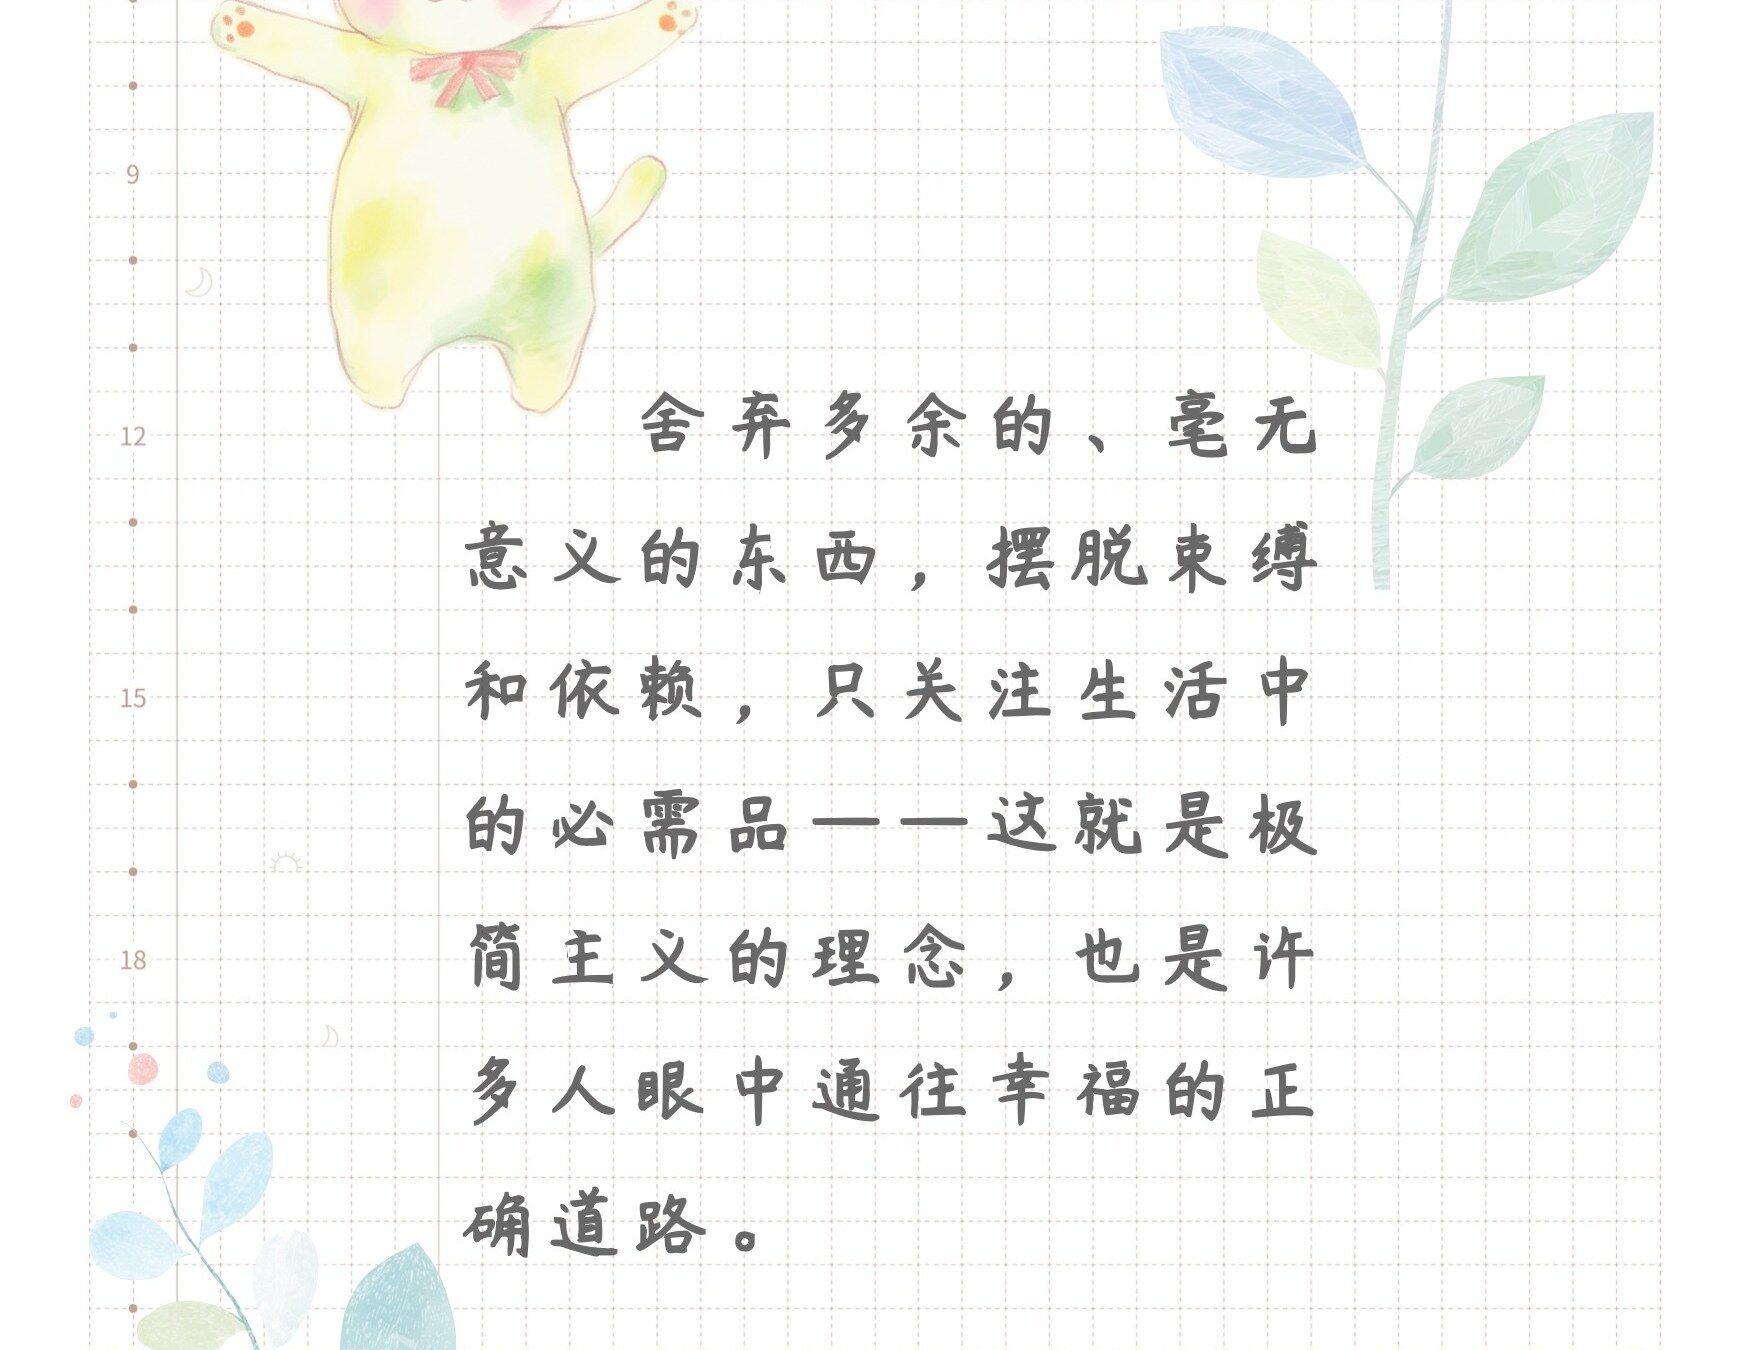 9
12
15
18
舍弃多余的、毫无
意义的东西，摆脱束缚
和依赖，只关注生活中
的必需品——这就是极
简主义的理念，也是许
多人眼中通往幸福的正
确道路。